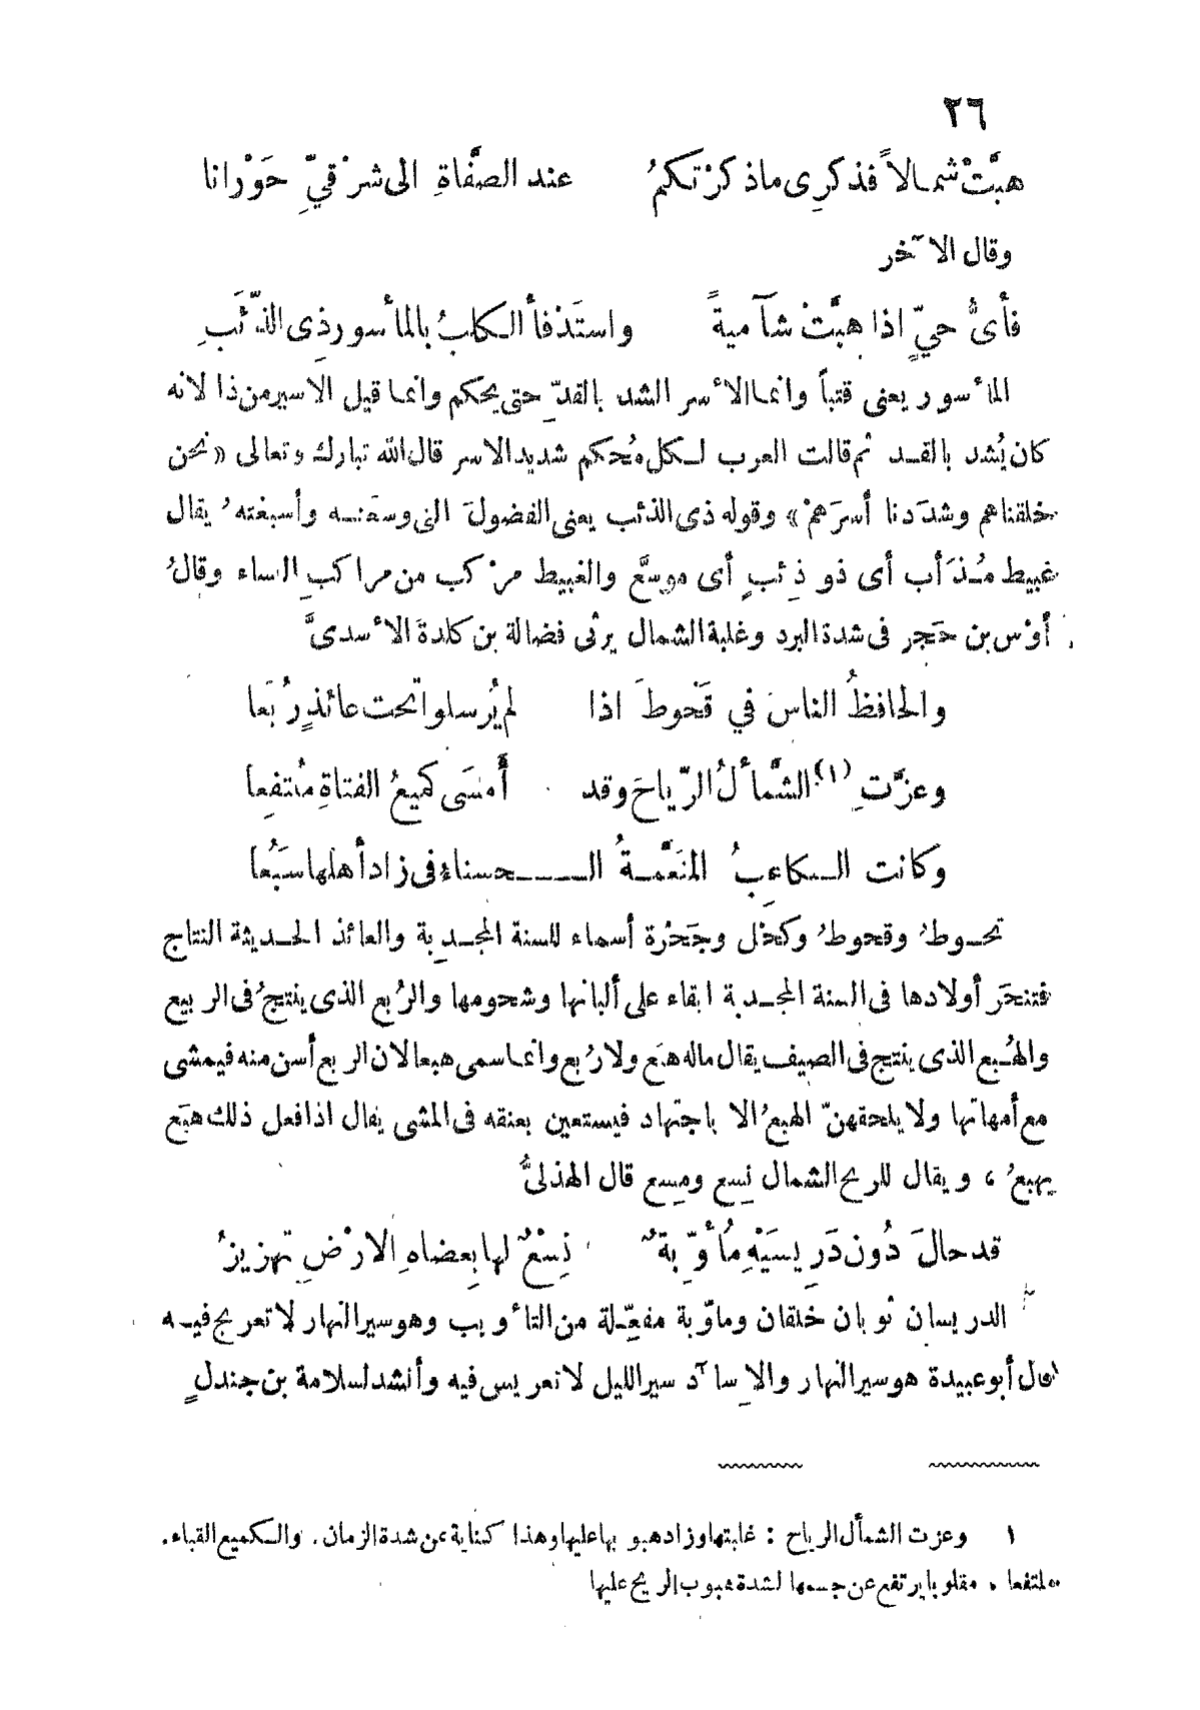 ٢٦
هبَّتْ شمالاً فذكرِى ماذكرْتكمُ    عند الصَّفاةِ الى شرْقيِّ حَوْرانا
وقال الآخر
فأىُّ حيٍّ اذا هبَّتْ شآميةً    واستَدْفأ الكلبُ بالمأسورِذى الذّئَبِ
المأسور يعنى قتباً وانما الأسر الشد بالقدِّ حتى يحكم وانما قيل الاسير من ذا لانه
كان يُشد بالقد ثم قالت العرب لكل مُحكم شديد الاسر قال الله تبارك وتعالى «نحن
خلقناهم وشدَدنا أسرَهمْ» وقوله ذى الذئب يعنى الفضولَ التى وسعته وأسبغته ُ يقال
غبيط مُذَأب أى ذو ذِئبٍ أى موسعَّ والغبيط مرْكب من مراكبِ النساء وقالُ
أوْس بن حَجر فى شدة البرد وغلبة الشمال يرثى فضالة بن كلدةَ الأسدىَّ
والحافظُ الناسَ في قَحْوطَ اذا    لم يُرسلوا تحت عائذٍ رُبَعا
وعزَّتِ (١) الشَّمألُ الرّياحَ وقد    أَمْسَى كميعُ الفتاةِ مُلتفِعا
وكانت الكاعِبُ المنَعَّمةُ الـ    ـحسناء فى زاد أهلها سَبُعا
تحوطُ وقحوطُ وكحْل وجَحْرة أسماء للسنة المجدِبة والعائذ الحديثة النتاج
فتنحَر أولادها فى السنة المجدبة ابقاء على ألبانها وشحومها والرُبع الذى ينتجُ فى الربيع
والهُبع الذى ينتج فى الصيف يقال ماله هبَع ولا رُبع وانما سمى هبعا لان الربع أسن منه فيمشى
مع أمهاتها ولا يلحقهنّ الهبعُ الا باجتهاد فيستعين بعنقه فى المشى يقال اذا فعل ذلك هبَع
يهبعُ ، ويقال للريح الشمال نِسع ومِسع قال الهذلىُّ
قد حالَ دُون دَرِيسَيْهِ مُأَوِّبةٌ    نِسْعٌ لها بِعضاهِ الارْضِ تهزيزُ
الدريسان ثوبان خلقان وماوّبة مفعِّلة من التأويب وهو سير النهار لا تعريج فيه
قال أبو عبيدة هو سير النهار والاِسآد سير الليل لا تعريس فيه وأنشد لسلامة بن جندلٍ
١ وعزت الشمأل الرياح : غلبتها وزاد هبوبها عليها وهذا كناية عن شدة الزمان. والكميع القباء.
ملتفعا . مقلوبا يرتفع عن جسمها لشدة هبوب الريح عليها